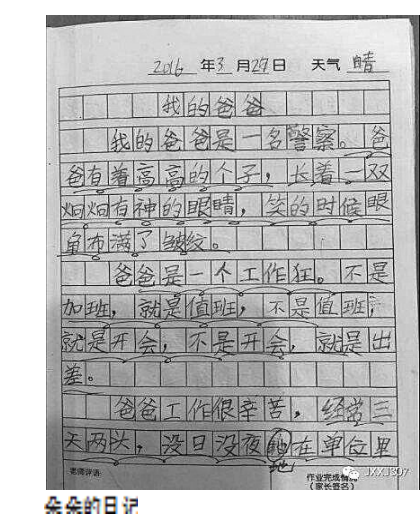 2016年3月29日 天气 晴
我的爸爸
我的爸爸是一名警察。爸
爸有着高高的个子，长着一双
炯炯有神的眼睛，笑的时候眼
角布满了皱纹。
爸爸是一个工作狂。不是
加班，就是值班，不是值班，
就是开会，不是开会，就是出
差。
爸爸工作很辛苦，经常三
天两头，没日没夜地在单位里
老师评语:
作业完成情况
(家长签名)
JXXJ307
朵朵的日记